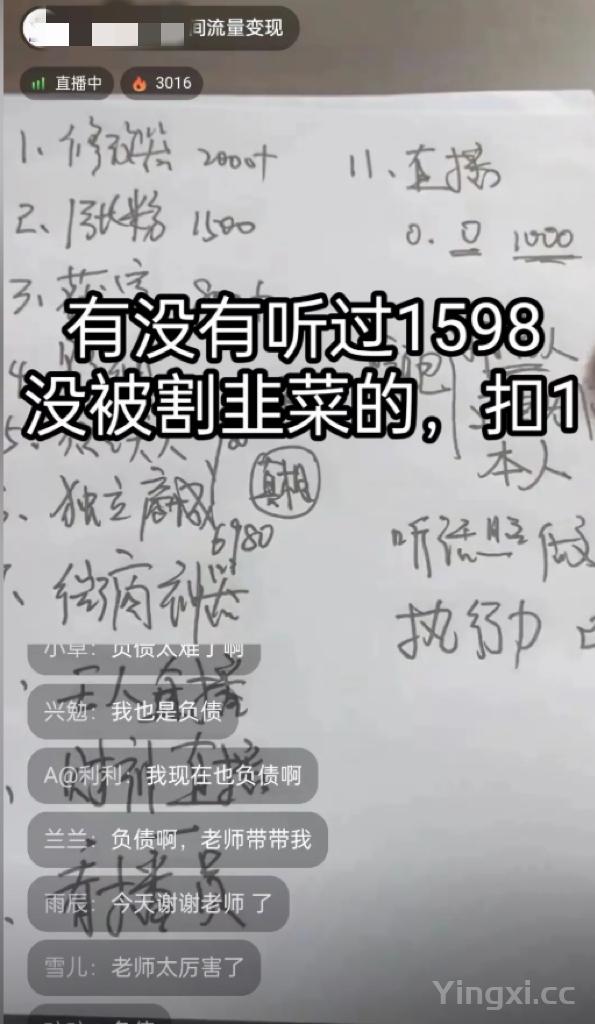 间流量变现
直播中
3016
1、修
2000+
11、直播
2、涨粉 1500
0. 0 1000
3、
有没有听过1598
没被割韭菜的，扣1
真相
本人
独立商城
6980
听话照做
微商神器
执行力
小草：负债太难了啊
无人直播
兴勉：我也是负债
A@利利：我现在也负债啊
财神直播
兰兰：负债啊，老师带带我
雨辰：今天谢谢老师 了
播音员
雪儿：老师太厉害了
Yingxi.cc